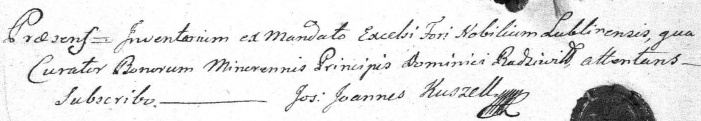 Præsens Inventarium ex Mandato Excelsi Fori Nobilium Lublinensis, qua
Curator Bonorum Minorennis Principis Dominici Radziwill, attentans
Subscribo. Jos: Joannes Kuszell